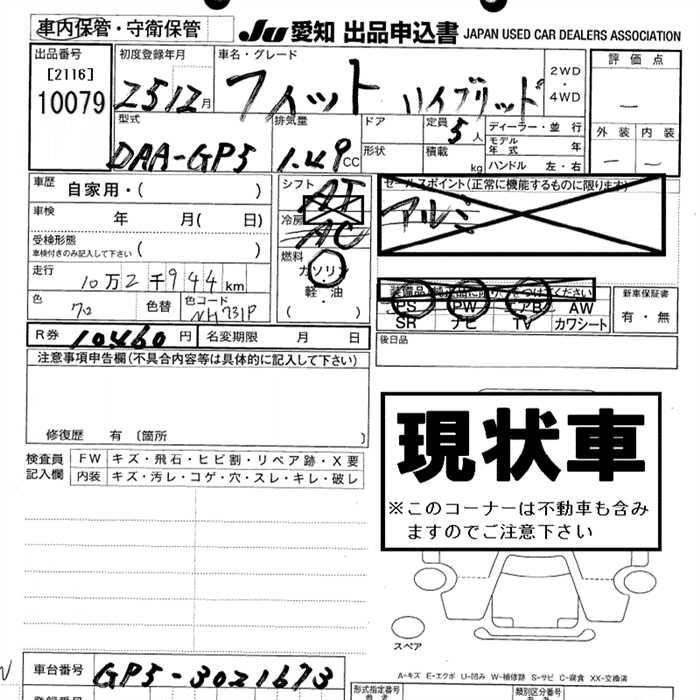 車内保管・守衛保管
JU 愛知 出品申込書 JAPAN USED CAR DEALERS ASSOCIATION
出品番号
[2116]
10079
初度登録年月
25 12月
車名・グレード
フィット ハイブリッド
2WD
・
4WD
評価点
―
外装 内装
― ―
型式
DAA-GP5
排気量
1.49 CC
ドア
定員 5人
形状
積載 kg
ディーラー・並行
モデル年式 年
ハンドル 左・右
車歴 自家用・( )
車検 年 月( 日)
受検形態
車検付きのみ記入して下さい ( )
走行 10万2千944km
色 色替 色コード
クロ NH731P
シフト AT
冷房 AC
燃料
ガソリン
軽・油
( )
セールスポイント(正常に機能するものに限ります)
アルミ
PS PW エアB AW
SR ナビ TV カワシート
新車保証書
有・無
後日品
R券 10460円 名変期限 月 日
注意事項申告欄(不具合内容等は具体的に記入して下さい)
修復歴 有 〔箇所 〕
検査員記入欄
FW キズ・飛石・ヒビ割・リペア跡・X要
内装 キズ・汚レ・コゲ・穴・スレ・キレ・破レ
現状車
※このコーナーは不動車も含み
ますのでご注意下さい
スペア
A-キズ E-エクボ U-凹み W-補修跡 S-サビ C-腐食 XX-交換済
車台番号 GP5-3021673
型式指定番号
類別区分番号